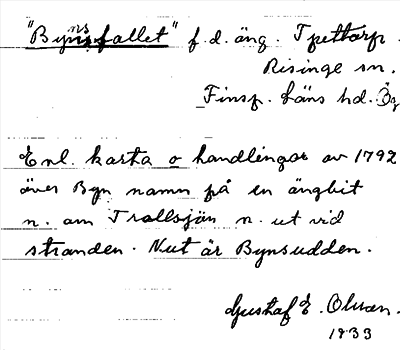 "Bynsfallet" f.d. äng. Tpettorp.
Risinge sn.
Finsp. läns hd. Ög
Enl. karta o handlingar av 1792
över Byn namn på en ängbit
n. om Trallsjön n. ut vid
stranden. Nut är Bynsudden.
Gustaf E. Olsson.
1933